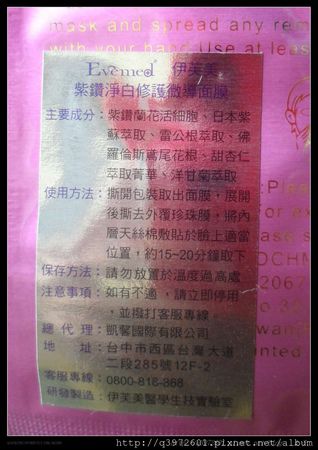 mask and spread any rem
with your hand Use at leas
Evemed® 伊芙美
紫鑽淨白修護微導面膜
主要成分：紫鑽蘭花活細胞、日本紫
蘇萃取、雷公根萃取、佛
羅倫斯鳶尾花根、甜杏仁
萃取菁華、洋甘菊萃取
使用方法：撕開包裝取出面膜，展開
後撕去外覆珍珠膜，將內
層天絲棉敷貼於臉上適當
位置，約15-20分鐘取下
保存方法：請勿放置於溫度過高處
注意事項：如有不適，請立即停用
，並撥打客服專線
總代理：凱馨國際有限公司
地址：台中市西區台灣大道
二段285號12F-2
客服專線：0800-818-868
研發製造：伊芙美醫學生技實驗室
:Plea
or ex
ase s
DCHM
2067
http://q3972601.pixnet.net/album